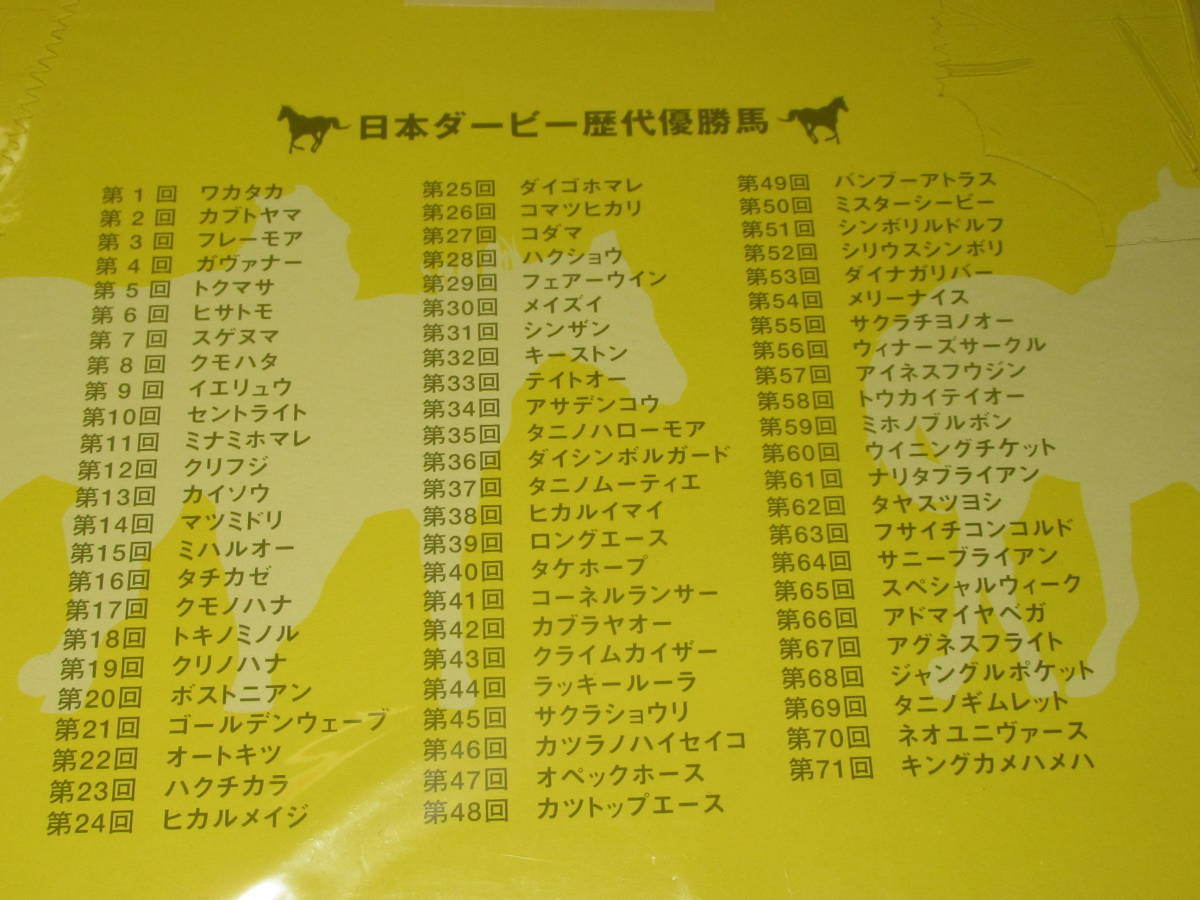 日本ダービー歴代優勝馬
第1回 ワカタカ
第2回 カブトヤマ
第3回 フレーモア
第4回 ガヴァナー
第5回 トクマサ
第6回 ヒサトモ
第7回 スゲヌマ
第8回 クモハタ
第9回 イエリュウ
第10回 セントライト
第11回 ミナミホマレ
第12回 クリフジ
第13回 カイソウ
第14回 マツミドリ
第15回 ミハルオー
第16回 タチカゼ
第17回 クモノハナ
第18回 トキノミノル
第19回 クリノハナ
第20回 ボストニアン
第21回 ゴールデンウェーブ
第22回 オートキツ
第23回 ハクチカラ
第24回 ヒカルメイジ
第25回 ダイゴホマレ
第26回 コマツヒカリ
第27回 コダマ
第28回 ハクショウ
第29回 フェアーウイン
第30回 メイズイ
第31回 シンザン
第32回 キーストン
第33回 テイトオー
第34回 アサデンコウ
第35回 タニノハローモア
第36回 ダイシンボルガード
第37回 タニノムーティエ
第38回 ヒカルイマイ
第39回 ロングエース
第40回 タケホープ
第41回 コーネルランサー
第42回 カブラヤオー
第43回 クライムカイザー
第44回 ラッキールーラ
第45回 サクラショウリ
第46回 カツラノハイセイコ
第47回 オペックホース
第48回 カツトップエース
第49回 バンブーアトラス
第50回 ミスターシービー
第51回 シンボリルドルフ
第52回 シリウスシンボリ
第53回 ダイナガリバー
第54回 メリーナイス
第55回 サクラチヨノオー
第56回 ウィナーズサークル
第57回 アイネスフウジン
第58回 トウカイテイオー
第59回 ミホノブルボン
第60回 ウイニングチケット
第61回 ナリタブライアン
第62回 タヤスツヨシ
第63回 フサイチコンコルド
第64回 サニーブライアン
第65回 スペシャルウィーク
第66回 アドマイヤベガ
第67回 アグネスフライト
第68回 ジャングルポケット
第69回 タニノギムレット
第70回 ネオユニヴァース
第71回 キングカメハメハ